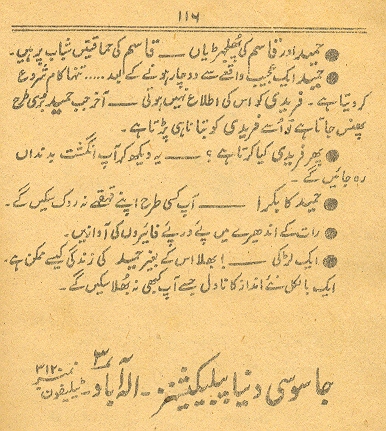 ۱۱۶
● حمید اور قاسم کی پھلجھڑیاں —— قاسم کی حماقتیں شباب پر ہیں۔
● حمید ایک عجیب واقعے سے دوچار ہونے کے بعد ..... تنہا کام شروع
کر دیتا ہے۔ فریدی کو اس کی اطلاع نہیں ہوتی —— آخر جب حمید بُری طرح
پھنس جاتا ہے تو اُسے فریدی کو بتانا ہی پڑتا ہے۔
● پھر فریدی کیا کرتا ہے؟ —— یہ دیکھ کر آپ انگشت بدنداں
رہ جائیں گے۔
● حمید کا بکرا —— آپ کسی طرح اپنے قہقہے نہ روک سکیں گے۔
● رات کے اندھیرے میں پے در پے فائیروں کی آوازیں۔
● ایک لڑکی —— ! بھلا اس کے بغیر حمید کی زندگی کیسے ممکن ہے۔
ایک بالکل نئے انداز کا ناول جسے آپ کبھی نہ بھلا سکیں گے۔
جاسوسی دنیا پبلیکیشنز۔ الہ آباد ۳۔ ٹیلیفون نمبر ۳۱۲۰